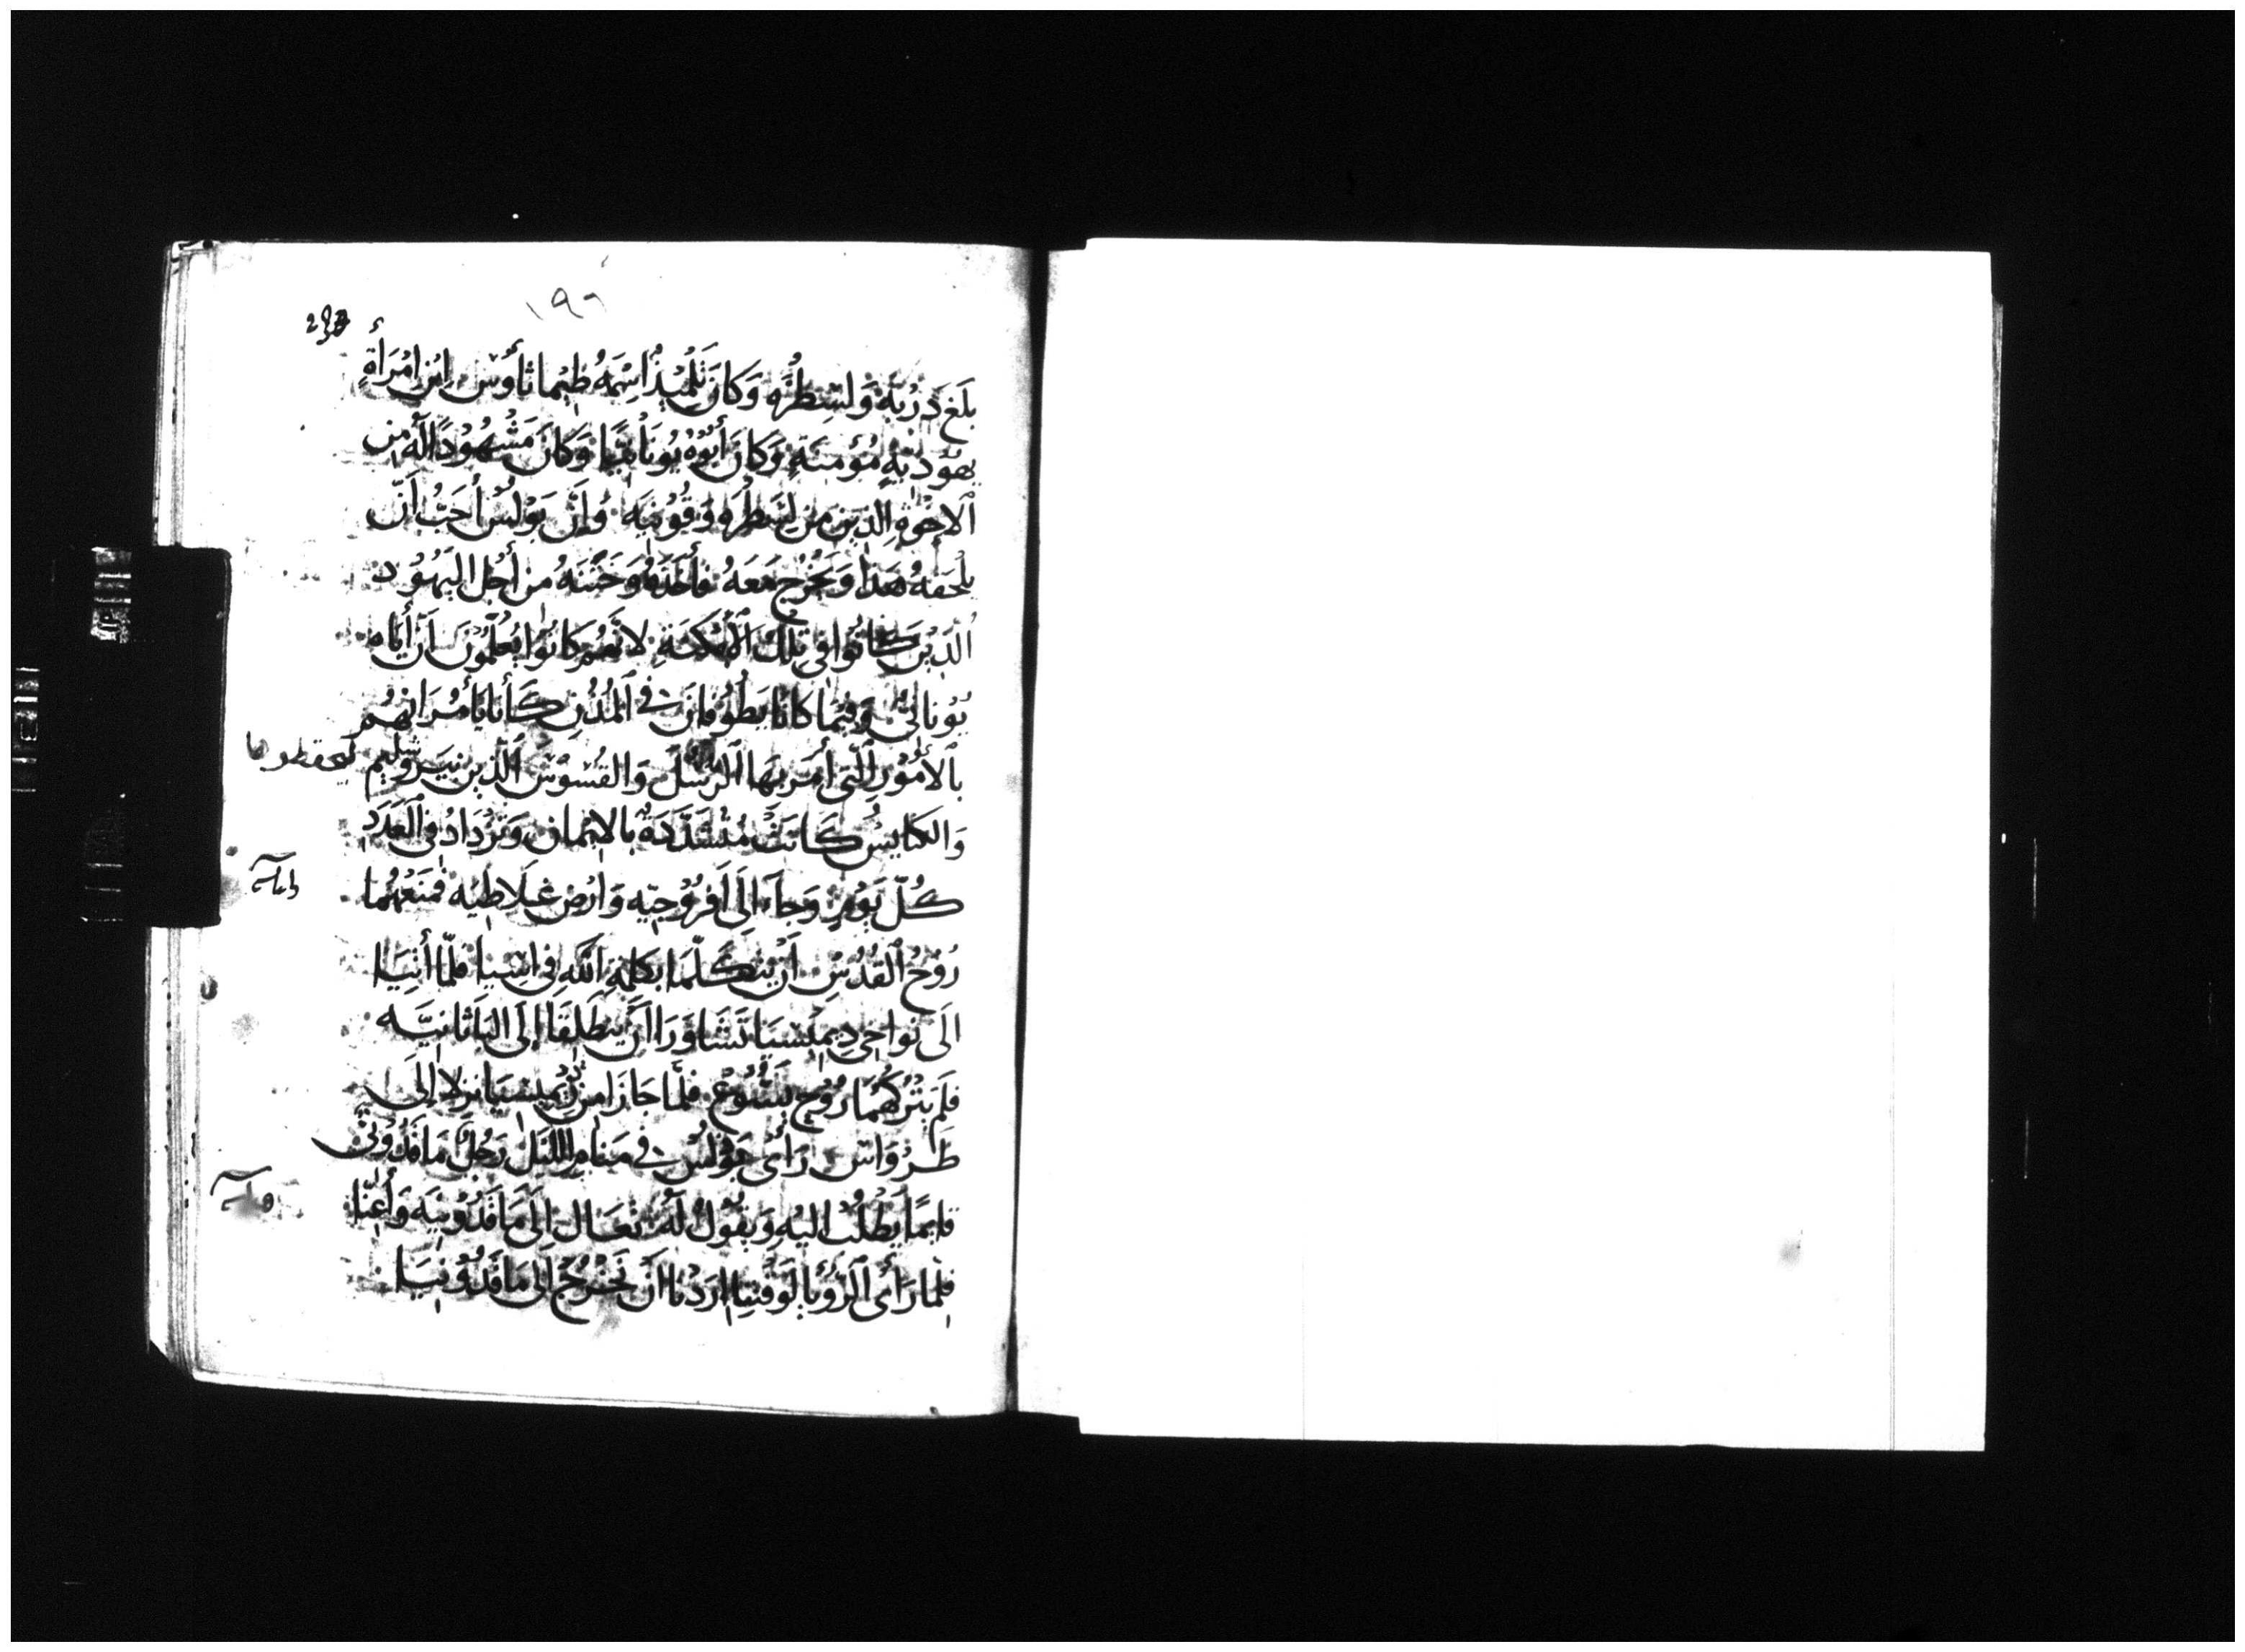 ١٩٦
بَلَغَ دَرْبَةَ وَلِسِطْرَه وَكَانَ تِلْمِيْذٌ اسِمُهُ طِيْماثاوُس ابْن امْرَأَةٍ
يهُوْديَّةٍ مُؤمِنَةٍ وَكانَ أَبُوْهُ يُونَانيًّا وَكانَ مَشْهُوْدًا لَهُ مِن
الاخْوَةِ الذين من لِسَطْرَه وَقُونِيَه وَإنَّ بَوْلُسَ أحَبَّ أَنّ
يلْحَقهُ هَذا وَيَخْرُج مَعَهُ فأخَذَهُ وَخَتَنَهُ من أجْل اليَهُوْد
الَّذِيْنَ كانُوا في تِلكَ الأمْكنَةِ لانَّهُم كانُوا يعْلَمُوْنَ أنَّ أباه
يُوْنانيٌّ وَفيْمَا كانَا يَطُوْفانِ في المُدُنِ كَانَا يَأمُرَانِهُم
بالأُمُوْرِ التي أمَرَ بهَا الرُّسُلُ وَالقُسُوْسُ الَّذِين بيَرُوشليم ليحفظوها
وَالكنايسُ كَانَتْ مُتشَدِّدَةً بالايْمان وَتَزْدَادُ في العَدَدِ
كُلّ يَوْمٍ وَجآءَا الَى افرُوْجيه وَارْض غلَاطيَه فمَنَعَهُما
رُوْحُ القُدُسِ أنْ يتكَلَّمَا بكلمَةِ اللّهِ فى اسِيا فلمّا أتيَا
الَى نواحي مِيْسيَا تَشَاوَرَا انْ ينطَلِقَا إلى البَاثانيَّه
فلَم يَتْرُكهُمَا رُوْح يَسُوْع فلمَّا جَازَا من مِيْسيَا نزلا إلى
طَرْوَاس رَأى بَوْلُس في مَنَامِ اللَّيْل رَجُلٌ مَاقَدُوْنيّ
قايمًا يَطْلُبُ اليْهِ وَيقُوْلُ لَهُ تعَال الى مَاقَدُوْنيَه وَأعِنّا
فلمَّا رَأى الرُّؤيا لوَقْتِهِ ارَدْنا انْ نَخْرُجْ الَى مَاقَدُوْنيَا